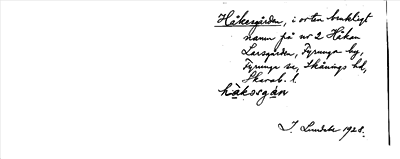 Håkesgården, i orten brukligt
namn på nr 2 Håkan
Larsgården, Fyrunga by,
Fyrunga sn, Skånings hd,
Skarab. l.
håkəsgån
I. Lundahl 1928.